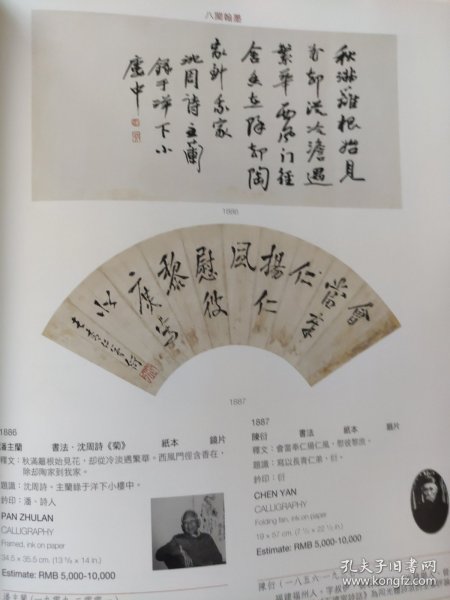 八闽翰墨
秋滿籬根始見
花却從冷澹遇
繁華西風门徑
含香在除却陶
家到我家
沈周詩主蘭
錄于洋下小
樓中
1886
會
當奉
仁
揚仁
風
慰彼
黎
庶
1887
1886
潘主蘭 書法·沈周詩《菊》 紙本 鏡片
釋文：秋滿籬根始見花，却從冷淡遇繁華。西風門徑含香在，
除却陶家到我家。
題識：沈周詩。主蘭錄于洋下小樓中。
鈐印：潘、詩人
PAN ZHULAN
CALLIGRAPHY
Framed, ink on paper
34.5 x 35.5 cm. (13 ⅝ x 14 in.)
Estimate: RMB 5,000-10,000
1887
陳衍 書法 紙本 扇片
釋文：會當奉仁揚仁風，慰彼黎庶。
題識：寫以長青仁弟，衍。
鈐印：衍
CHEN YAN
CALLIGRAPHY
Folding fan, ink on paper
19 x 57 cm. (7 ½ x 22 ½ in.)
Estimate: RMB 5,000-10,000
陳衍（一八五六—一九
福建福州人，字叔伊
孔夫子旧书网